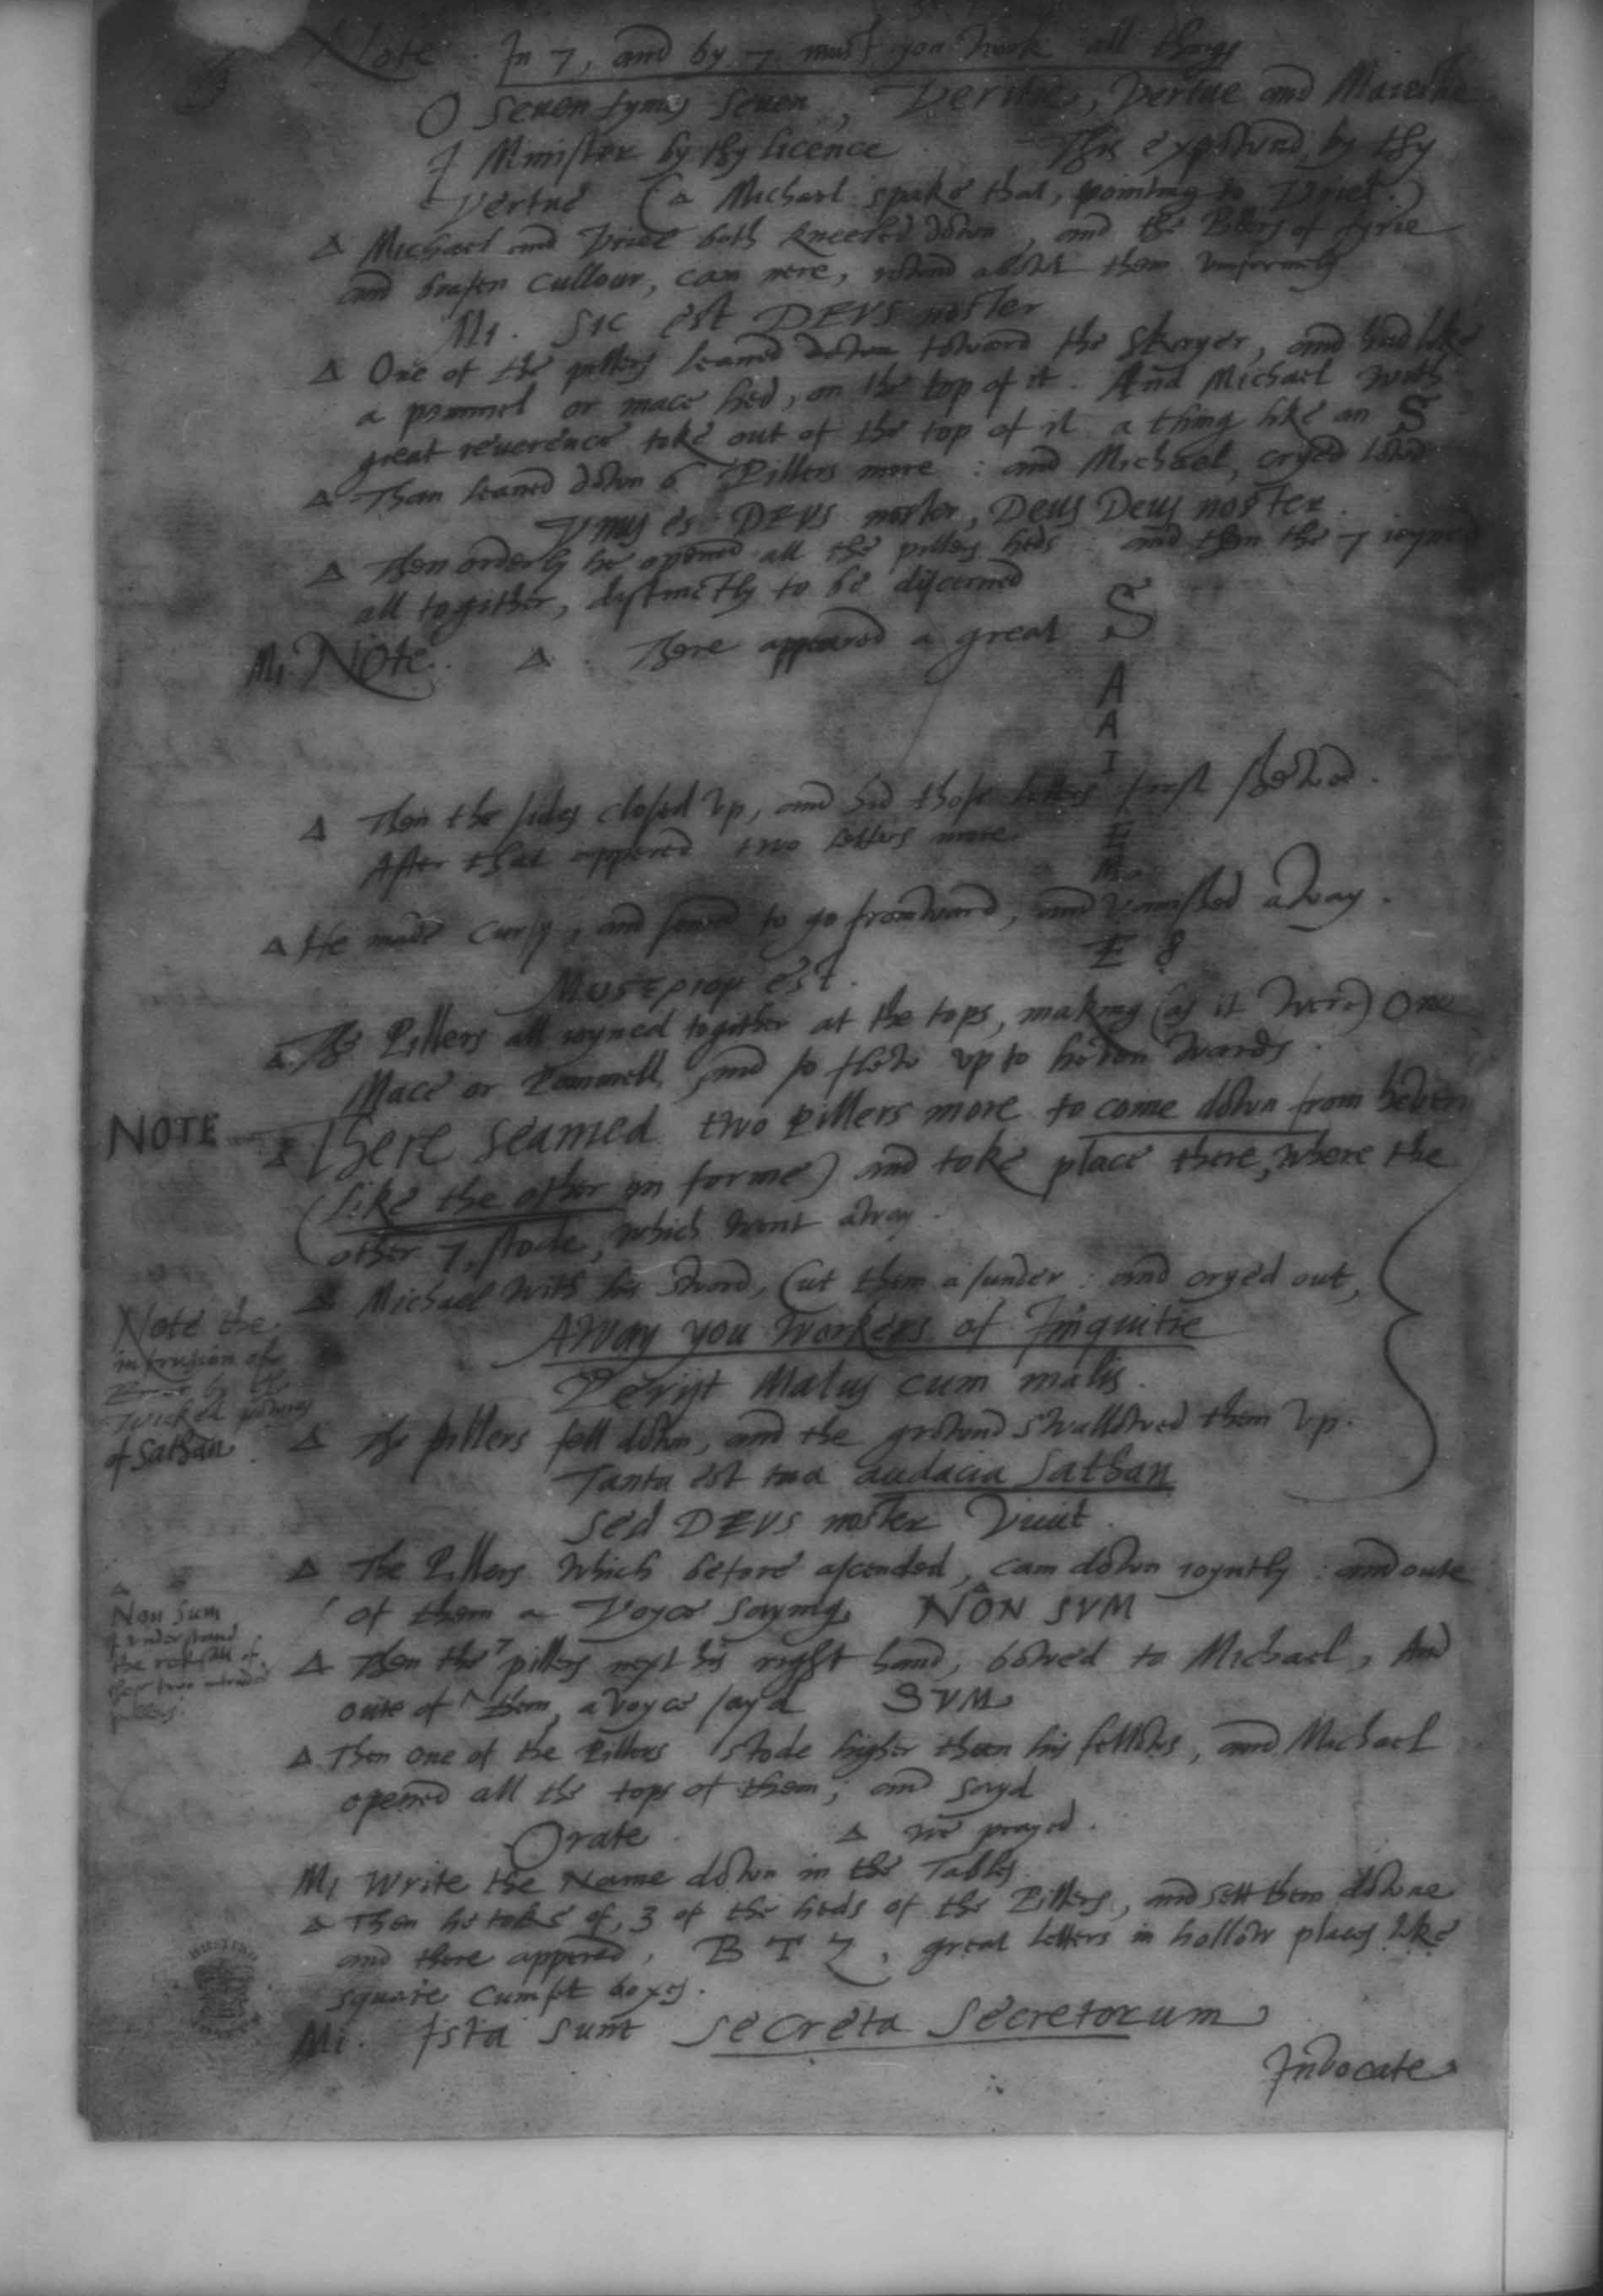 Note. In 7, and by 7 must you work all things
O seuen tymes seuen, Veritie, Vertue and Maiestie
I Minister by thy licence This expownd, by thy
Vertue (Δ Michael spake that, pointing to Vriel.)
Δ Michael and Vriel both kneeled down, and the Pillers of fyrie
and brasen cullour, cam nere, rownd abowt them vniformely
Mi. Sic est DEVS noster
Δ One of the pillers leaned toward the skryer, and had like
a pommel or mace hed, on the top of it. And Michael with
great reuerence toke out of the top of it a thing like an S
Δ Than leaned down 6 Pillers more : and Michael, cryed lowd
Vnus es DEVS noster, Deus Deus noster.
Δ Then orderly he opened all the pillers heds : and then the 7 ioyned
all togither, distinctly to be discerned
Mi. Note. Δ There appeared a great S
A
A
I
Δ Then the sides closed vp, and hid those letters first shewed.
After that appered two letters more
E
M.
Δ He made cursy, and semed to go fromward, and vanished away.
E 8
Mi. est.
Δ The Pillers all ioyned togither at the tops, making (as it were) One
Mace or Pommell, and so flew vp to heven wards.
NOTE Δ There seamed two pillers more to come down from heven
(like the other in forme) and toke place there, where the
other 7, stode, which went away.
Δ Michael with his sword, Cut them asunder : and cryed out,
Away you workers of Iniquitie
Perijt Malus cum malis.
Note the
intrusion of
Error by the
wicked powres
of Sathan.
Δ The pillers fell down, and the grownd swallowed them vp.
Tanta est tua audacia Sathan
Sed DEVS noster Viuit.
Δ The Pillers which before ascended, cam down ioyntly : and oute
of them a Voyce saying, NON SVM
Δ
Non sum
I vnderstand
the refusall of
these two intruded
pillers.
Δ Then the 7 pillers next his right hand, bowed to Michael, And
oute of them, a voyce sayd SVM
Δ Then one of the Pillers stode higher then his fellows, and Michael
opened all the tops of them; and sayd
Orate. Δ we prayed.
Mi Write the Name down in the Tables.
Δ Then he toke of, 3 of the heds of the Pillers, and sett them downe
and there appered, B T Z, great letters in hollow places like
square cumfet boxes.
Mi. Ista sunt secreta secretorum
Invocate